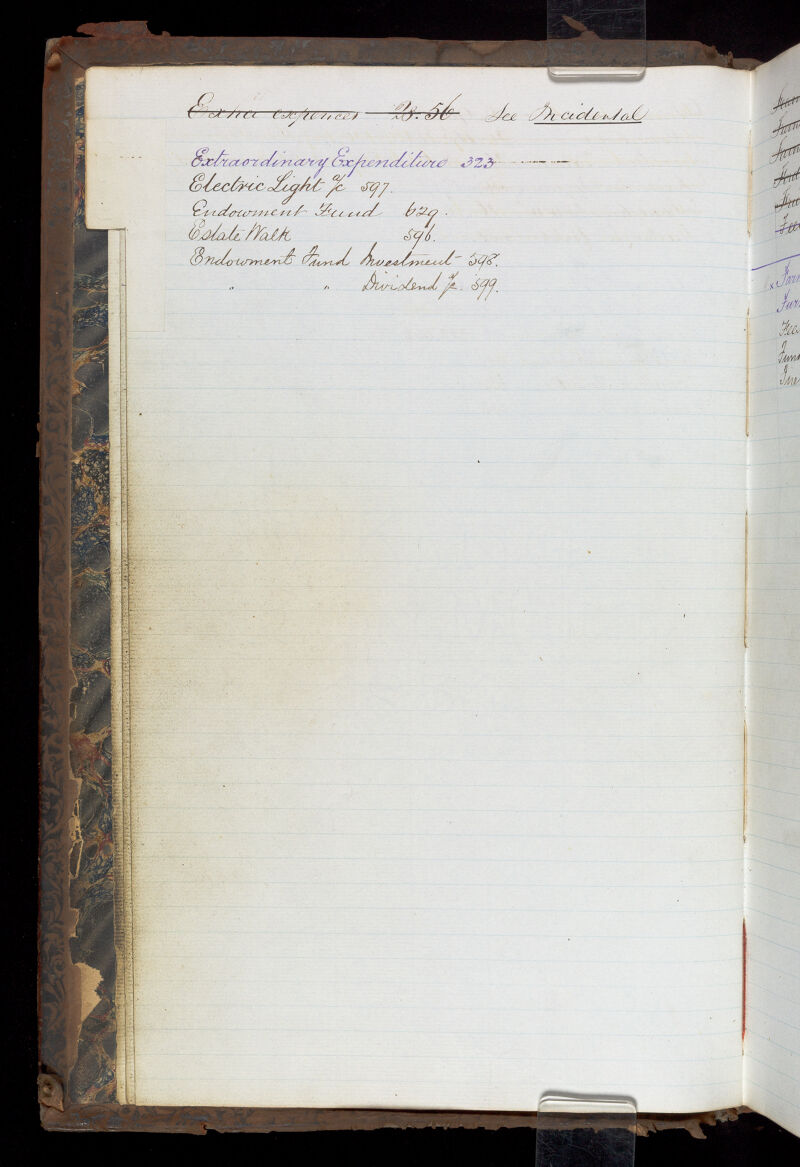 Extra expences 28.56 See Incidental
Extraordinary Expenditure 323
Electric Light a/c 597.
Endowment Fund 629.
Estate Walk 596.
Endowment Fund Investment 598.
" " Dividend a/c 599.
Fee